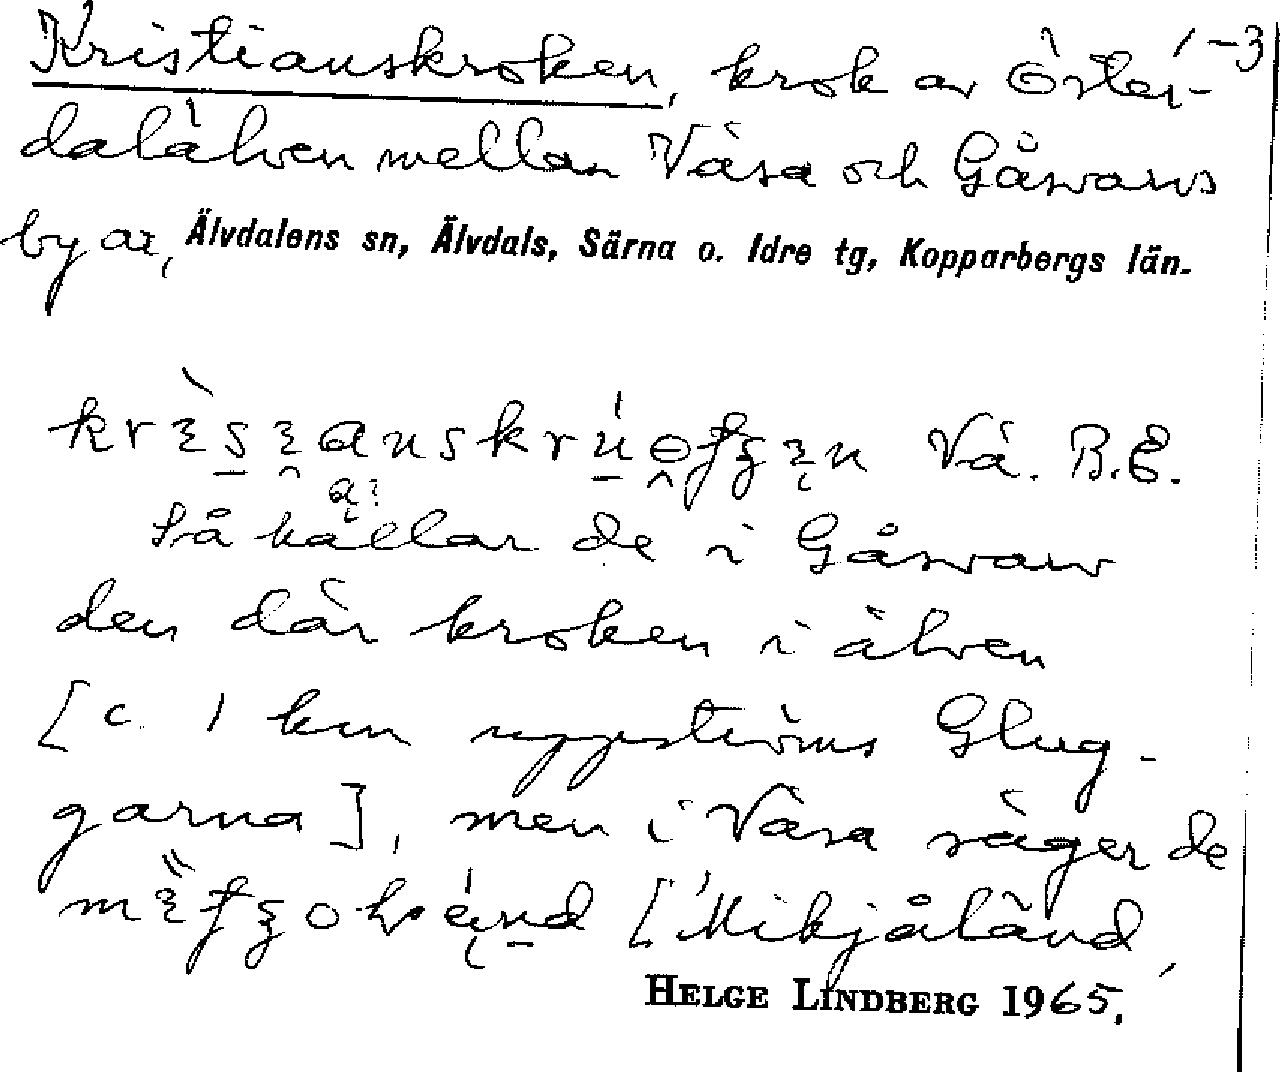 Kristianskroken, krok av Öster- 1-3
dalälven mellan Väsa och Gåsvarvs
byar, Älvdalens sn, Älvdals, Särna o. Idre tg, Kopparbergs län.
Vä. B.E.
Så kallar de i Gåsvarv
den där kroken i älven
[c. 1 km uppströms Glug-
garna], men i Väsa säger de
[Mikjåländ
HELGE LINDBERG 1965.